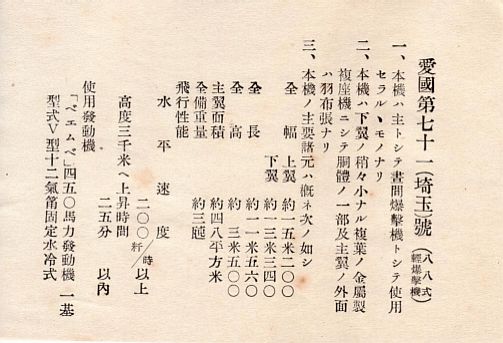 愛國第七十一(埼玉)號(八八式輕爆擊機)
一、本機ハ主トシテ晝間爆擊機トシテ使用
セラルヽモノナリ
二、本機ハ下翼ノ稍々小ナル複葉ノ金屬製
複座機ニシテ胴體ノ一部及主翼ノ外面
ハ羽布張ナリ
三、本機ノ主要諸元ハ槪ネ次ノ如シ
全幅 上翼 約一五米二〇〇
下翼 約一三米三四〇
全長 約一一米五六〇
全高 約三米五〇〇
主翼面積 約四八平方米
全備重量 約三瓲
飛行性能
水平速度 二〇〇粁/時以上
高度三千米ヘ上昇時間
二五分以內
使用發動機
「ベエムベ」四五〇馬力發動機 一基
型式V型十二氣筩固定水冷式